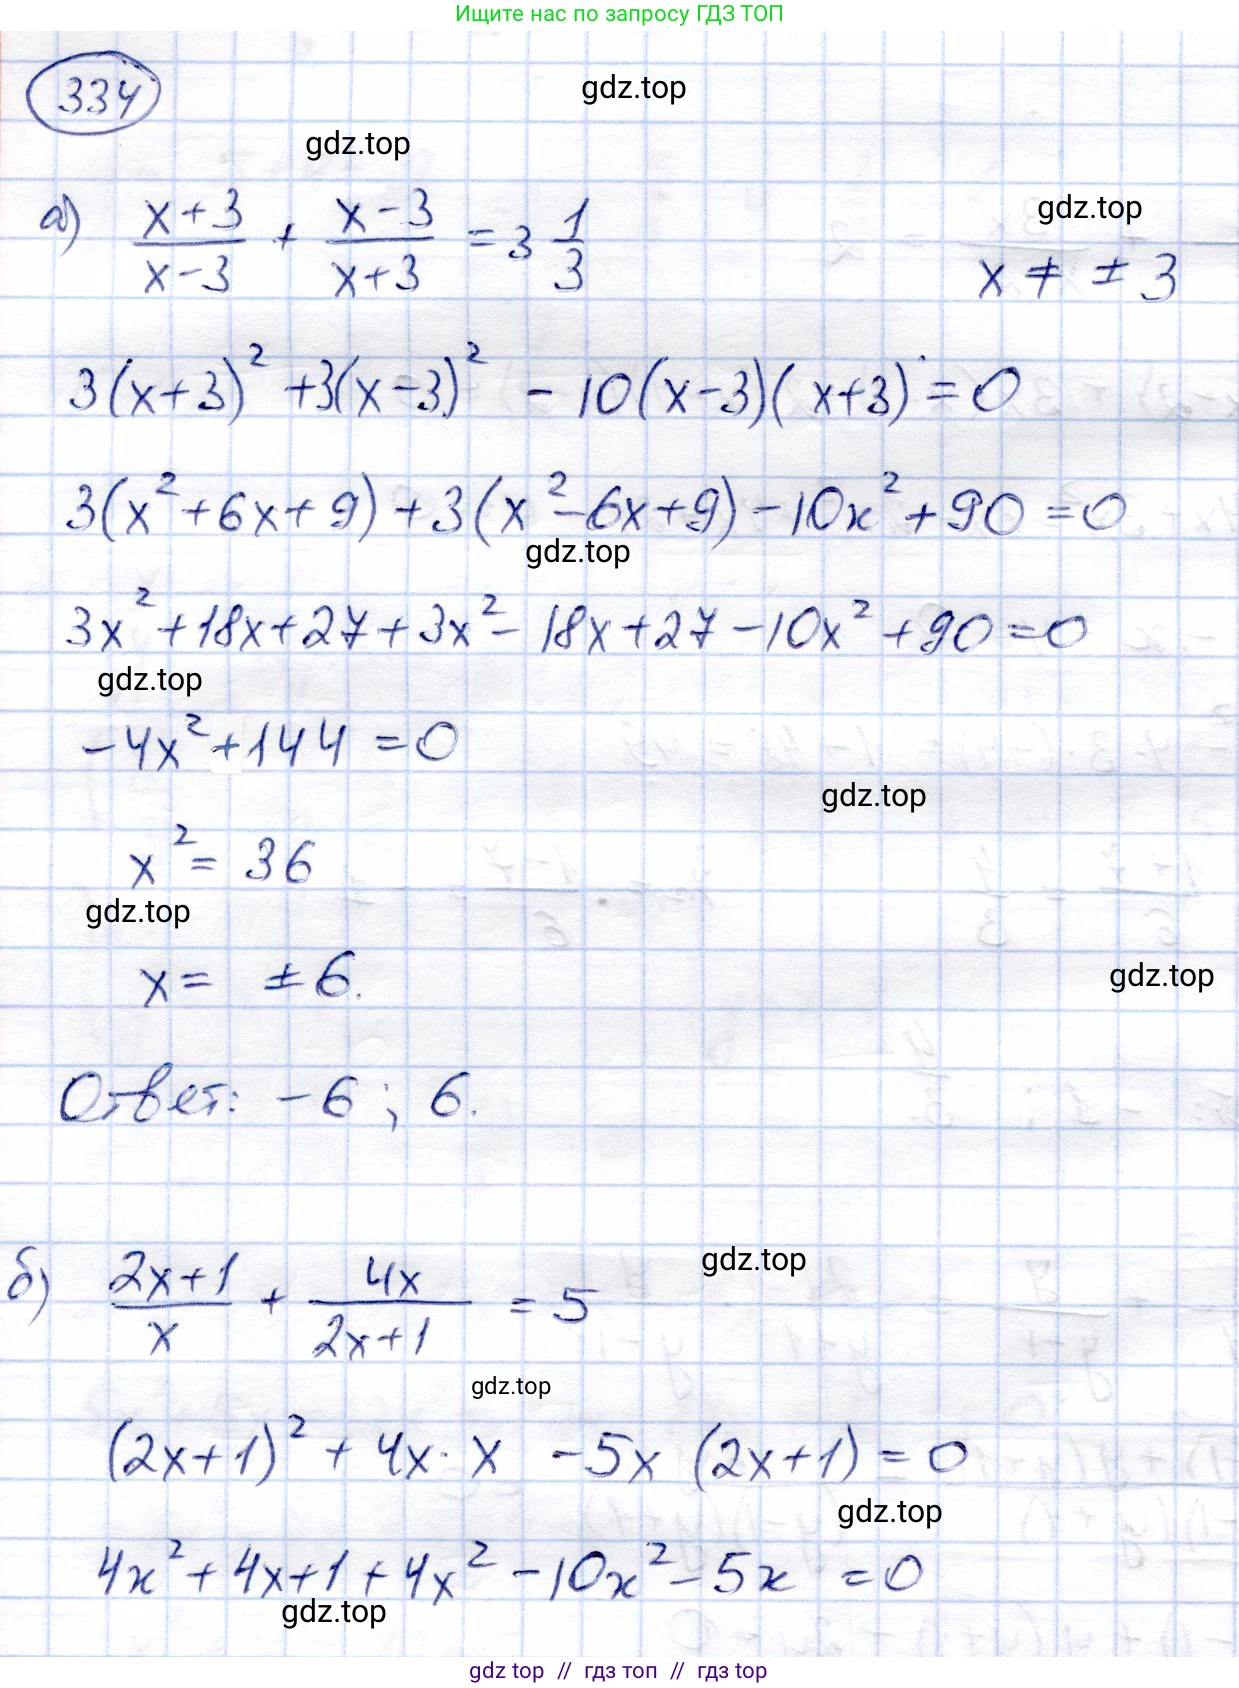 Ищите нас по запросу ГДЗ ТОП
334
gdz.top
gdz.top
а) (x+3)/(x-3) + (x-3)/(x+3) = 3 1/3
gdz.top
x ≠ ± 3
3(x+3)² + 3(x-3)² - 10(x-3)(x+3) = 0
3(x²+6x+9) + 3(x²-6x+9) - 10x² + 90 = 0
gdz.top
3x² + 18x + 27 + 3x² - 18x + 27 - 10x² + 90 = 0
gdz.top
-4x² + 144 = 0
gdz.top
x² = 36
gdz.top
x = ± 6.
gdz.top
Ответ: -6; 6.
б) (2x+1)/x + 4x/(2x+1) = 5
gdz.top
gdz.top
(2x+1)² + 4x · x - 5x (2x+1) = 0
gdz.top
4x² + 4x + 1 + 4x² - 10x² - 5x = 0
gdz.top
gdz top // гдз топ // гдз top